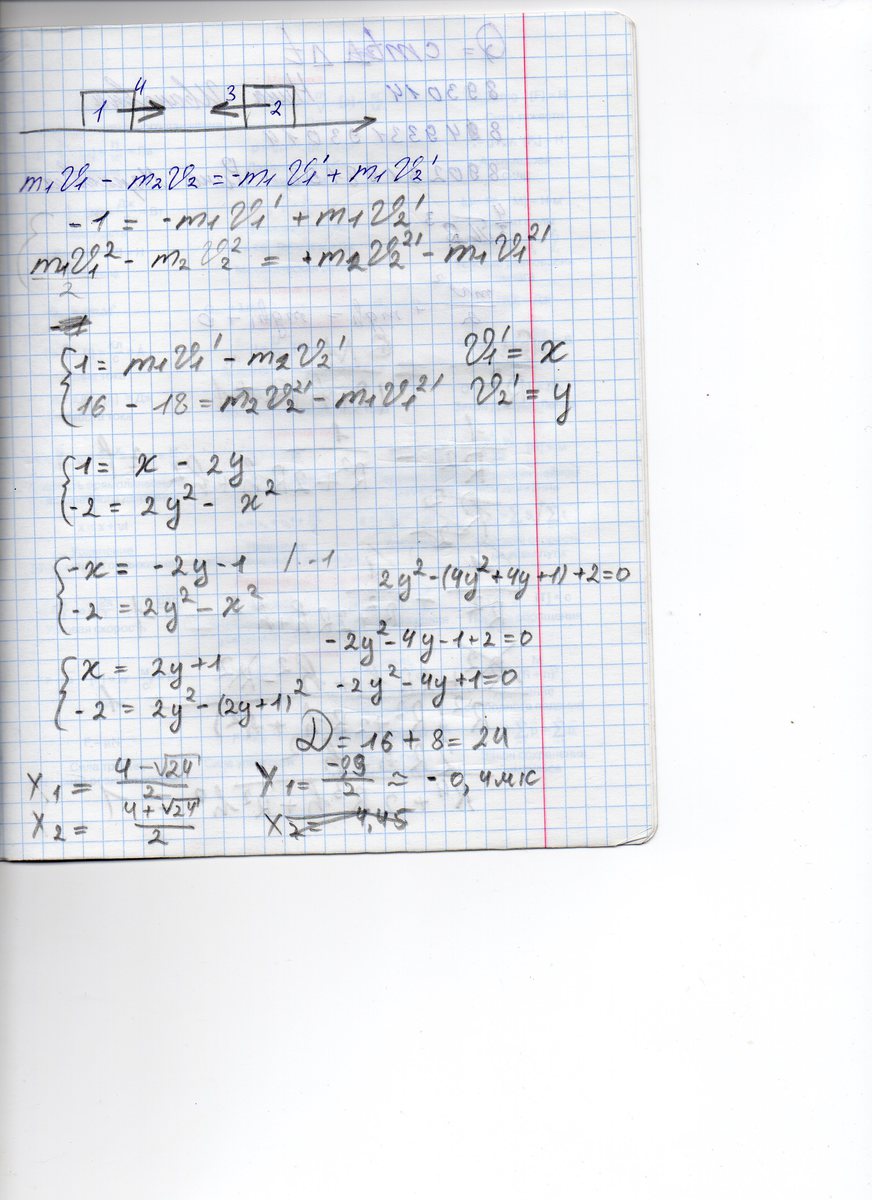 4 3
1 2
m₁V₁ - m₂V₂ = -m₁V₁' + m₁V₂'
-1 = -m₁V₁' + m₁V₂'
m₁V₁² - m₂V₂² = +m₂V₂²' - m₁V₁²'
2
1 = m₁V₁' - m₂V₂' V₁' = x
16 - 18 = m₂V₂²' - m₁V₁²' V₂' = y
1 = x - 2y
-2 = 2y² - x²
-x = -2y-1 /·-1 2y²-(4y²+4y+1)+2=0
-2 = 2y² - x²
-2y²-4y-1+2=0
x = 2y+1 -2y²-4y+1=0
-2 = 2y²-(2y+1)²
D = 16 + 8 = 24
x₁ = (4-√24)/2 x₁ = /2 ≈ -0,4 м/с
x₂ = (4+√24)/2 x₂ = 4,45